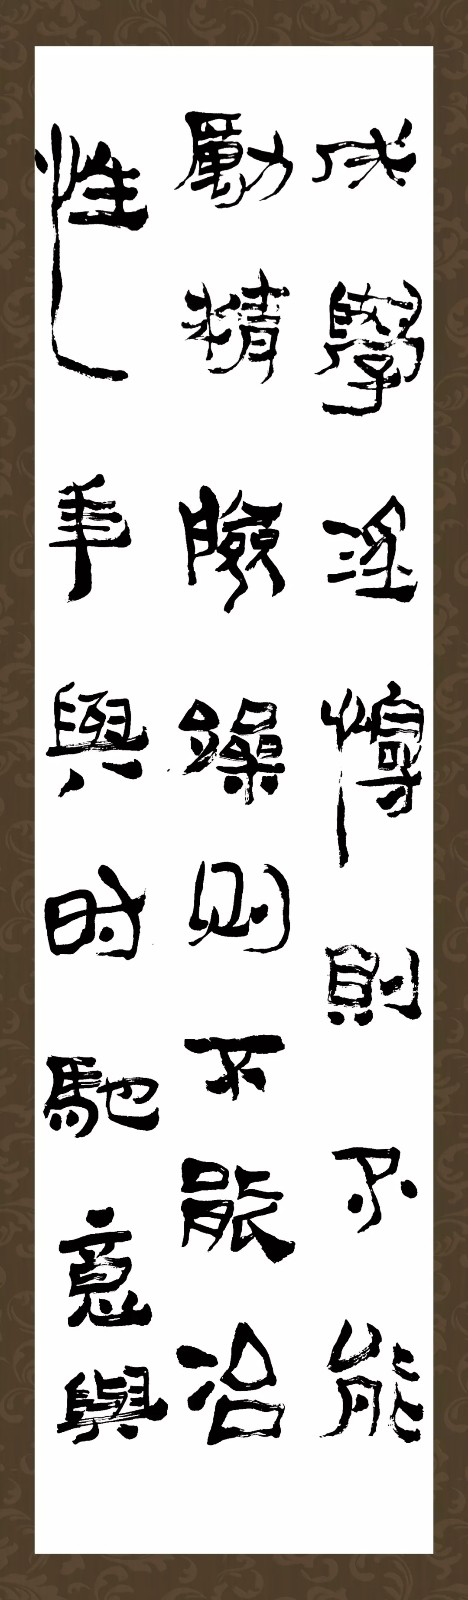 成學淫慢則不能
勵精險躁则不能冶
性年與时馳意與